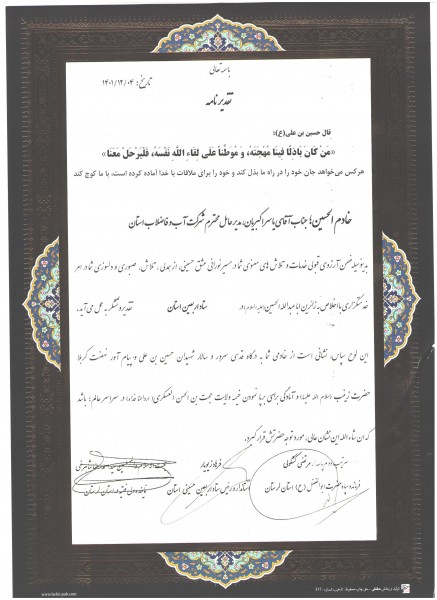 باسمه تعالی
تاریخ: ۱۴۰۱/۱۲/۰۴
تقدیرنامه
قال حسین بن علی(ع):
«مَن كان باذلًا فينا مُهجَتَهُ، و مُوَطِّناً عَلى لِقاءِ اللهِ نَفسَهُ، فَليَرحَل مَعَنا»
هرکس می‌خواهد جان خود را در راه ما بذل کند و خود را برای ملاقات با خدا آماده کرده است، با ما کوچ کند
خادم الحسین(ع) جناب آقای یاسر اکبریان، مدیرعامل محترم شرکت آب و فاضلاب استان
بدینوسیله ضمن آرزوی قبولی خدمات و تلاش های معنوی شما در مسیر نورانی عشق حسینی، از همدلی، تلاش، صبوری و دلسوزی شما در امر
خدمتگزاری با اخلاص به زائرین اباعبدالله الحسین (علیه السلام) در ستاد اربعین استان تقدیر و تشکر به عمل می آید.
این لوح سپاس، نشانی است از خادمی شما به درگاه قدسی سرور و سالار شهیدان حسین بن علی و پیام آور نهضت کربلا
حضرت زینب (سلام الله علیها) و آمادگی برای برپا نمودن خیمه ولایت حجت بن الحسن العسکری (روحنا فداه) در سراسر عالم؛ باشد
که ان شاءالله این نشان عالی، مورد توجه حضرتش قرار گیرد.
سرتیپ دوم پاسدار مرتضی کشکولی
فرمانده سپاه حضرت ابوالفضل (ع) استان لرستان
فرهاد زیویار
استاندار و رئیس ستاد اربعین حسینی استان
نماینده ولی فقیه در استان لرستان
www.hafez-pub.com